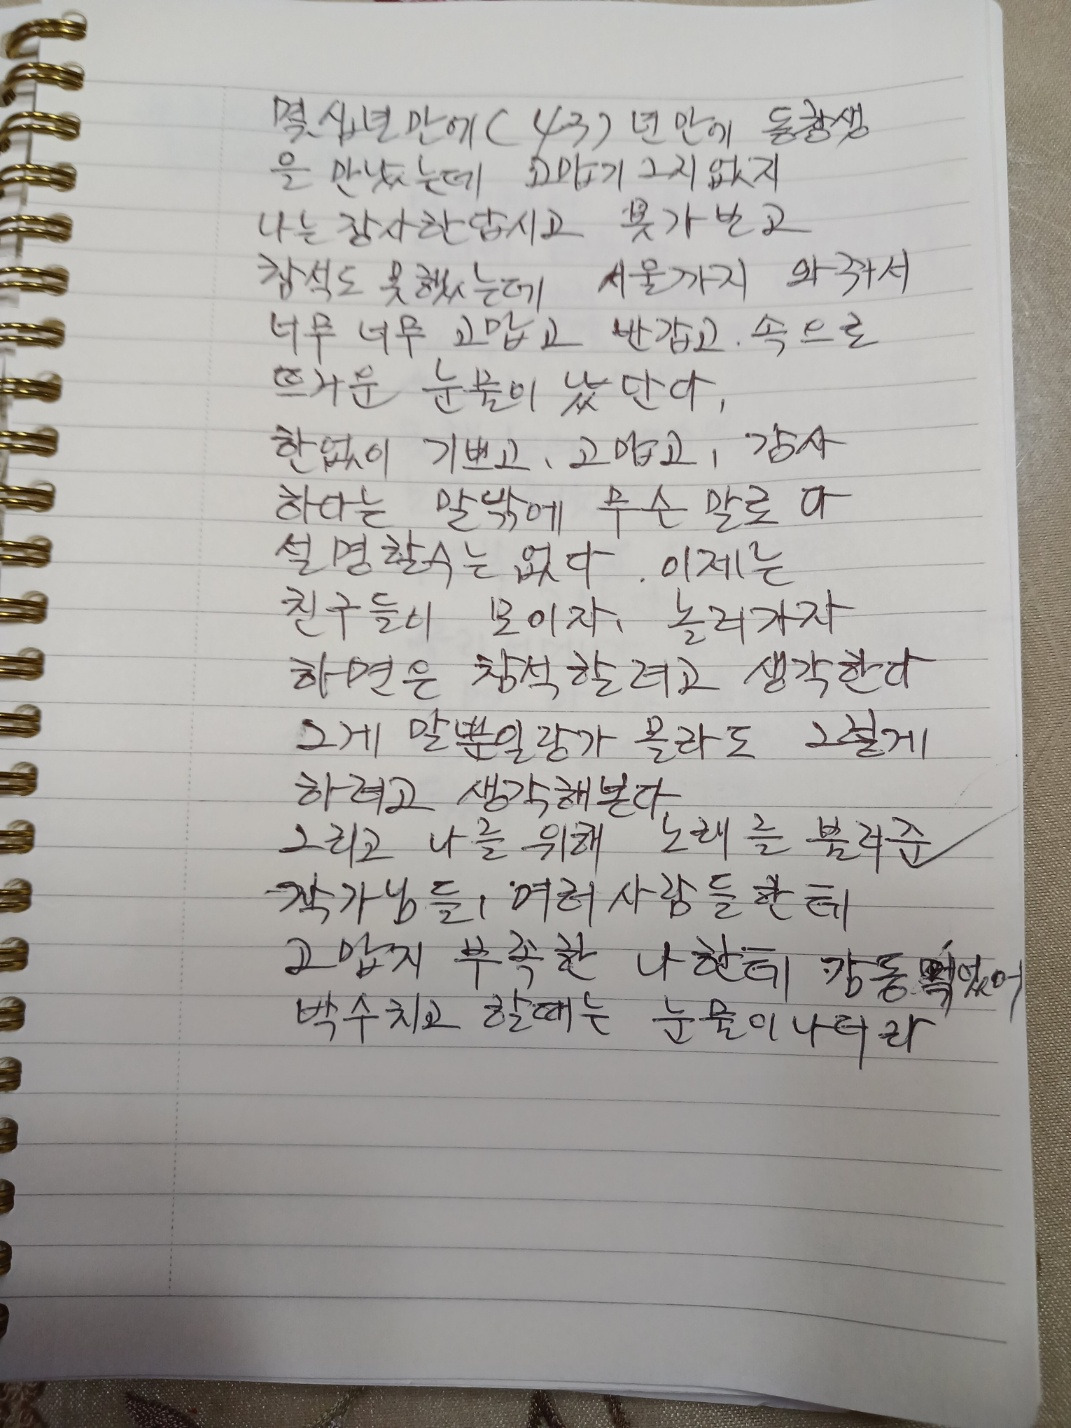 몇십년만에(43)년만에 동창생
을 만났는데 고맙기그지없지
나는장사한답시고 못가보고
참석도 못했는데 서울까지 와줘서
너무 너무 고맙고 반갑고. 속으로
뜨거운 눈물이 났단다,
한없이 기쁘고, 고맙고, 감사
하다는 말밖에 무슨 말로 다
설명할수는 없다. 이제는
친구들이 모이자, 놀러가자
하면은 참석할려고 생각한다
그게 말뿐일랑가 몰라도 그렇게
하려고 생각해본다
그리고 나를 위해 노래를 불러준
작가님들, 여러사람들한테
고맙지 부족한 나한테 감동먹었어
박수치고 할때는 눈물이나더라